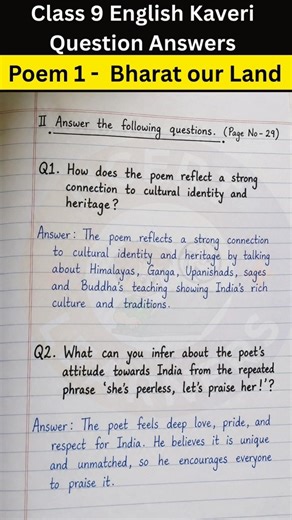 Class 9 English Kaveri
Question Answers
Poem 1 - Bharat our Land
II Answer the following questions. (Page No-29)
Q1. How does the poem reflect a strong
connection to cultural identity and
heritage?
Answer: The poem reflects a strong connection
to cultural identity and heritage by talking
about Himalayas, Ganga, Upanishads, sages
and Buddha's teaching showing India's rich
culture and traditions.
Q2. What can you infer about the poet's
attitude towards India from the repeated
phrase 'she's peerless, let's praise her!'?
Answer: The poet feels deep love, pride, and
respect for India. He believes it is unique
and unmatched, so he encourages everyone
to praise it.